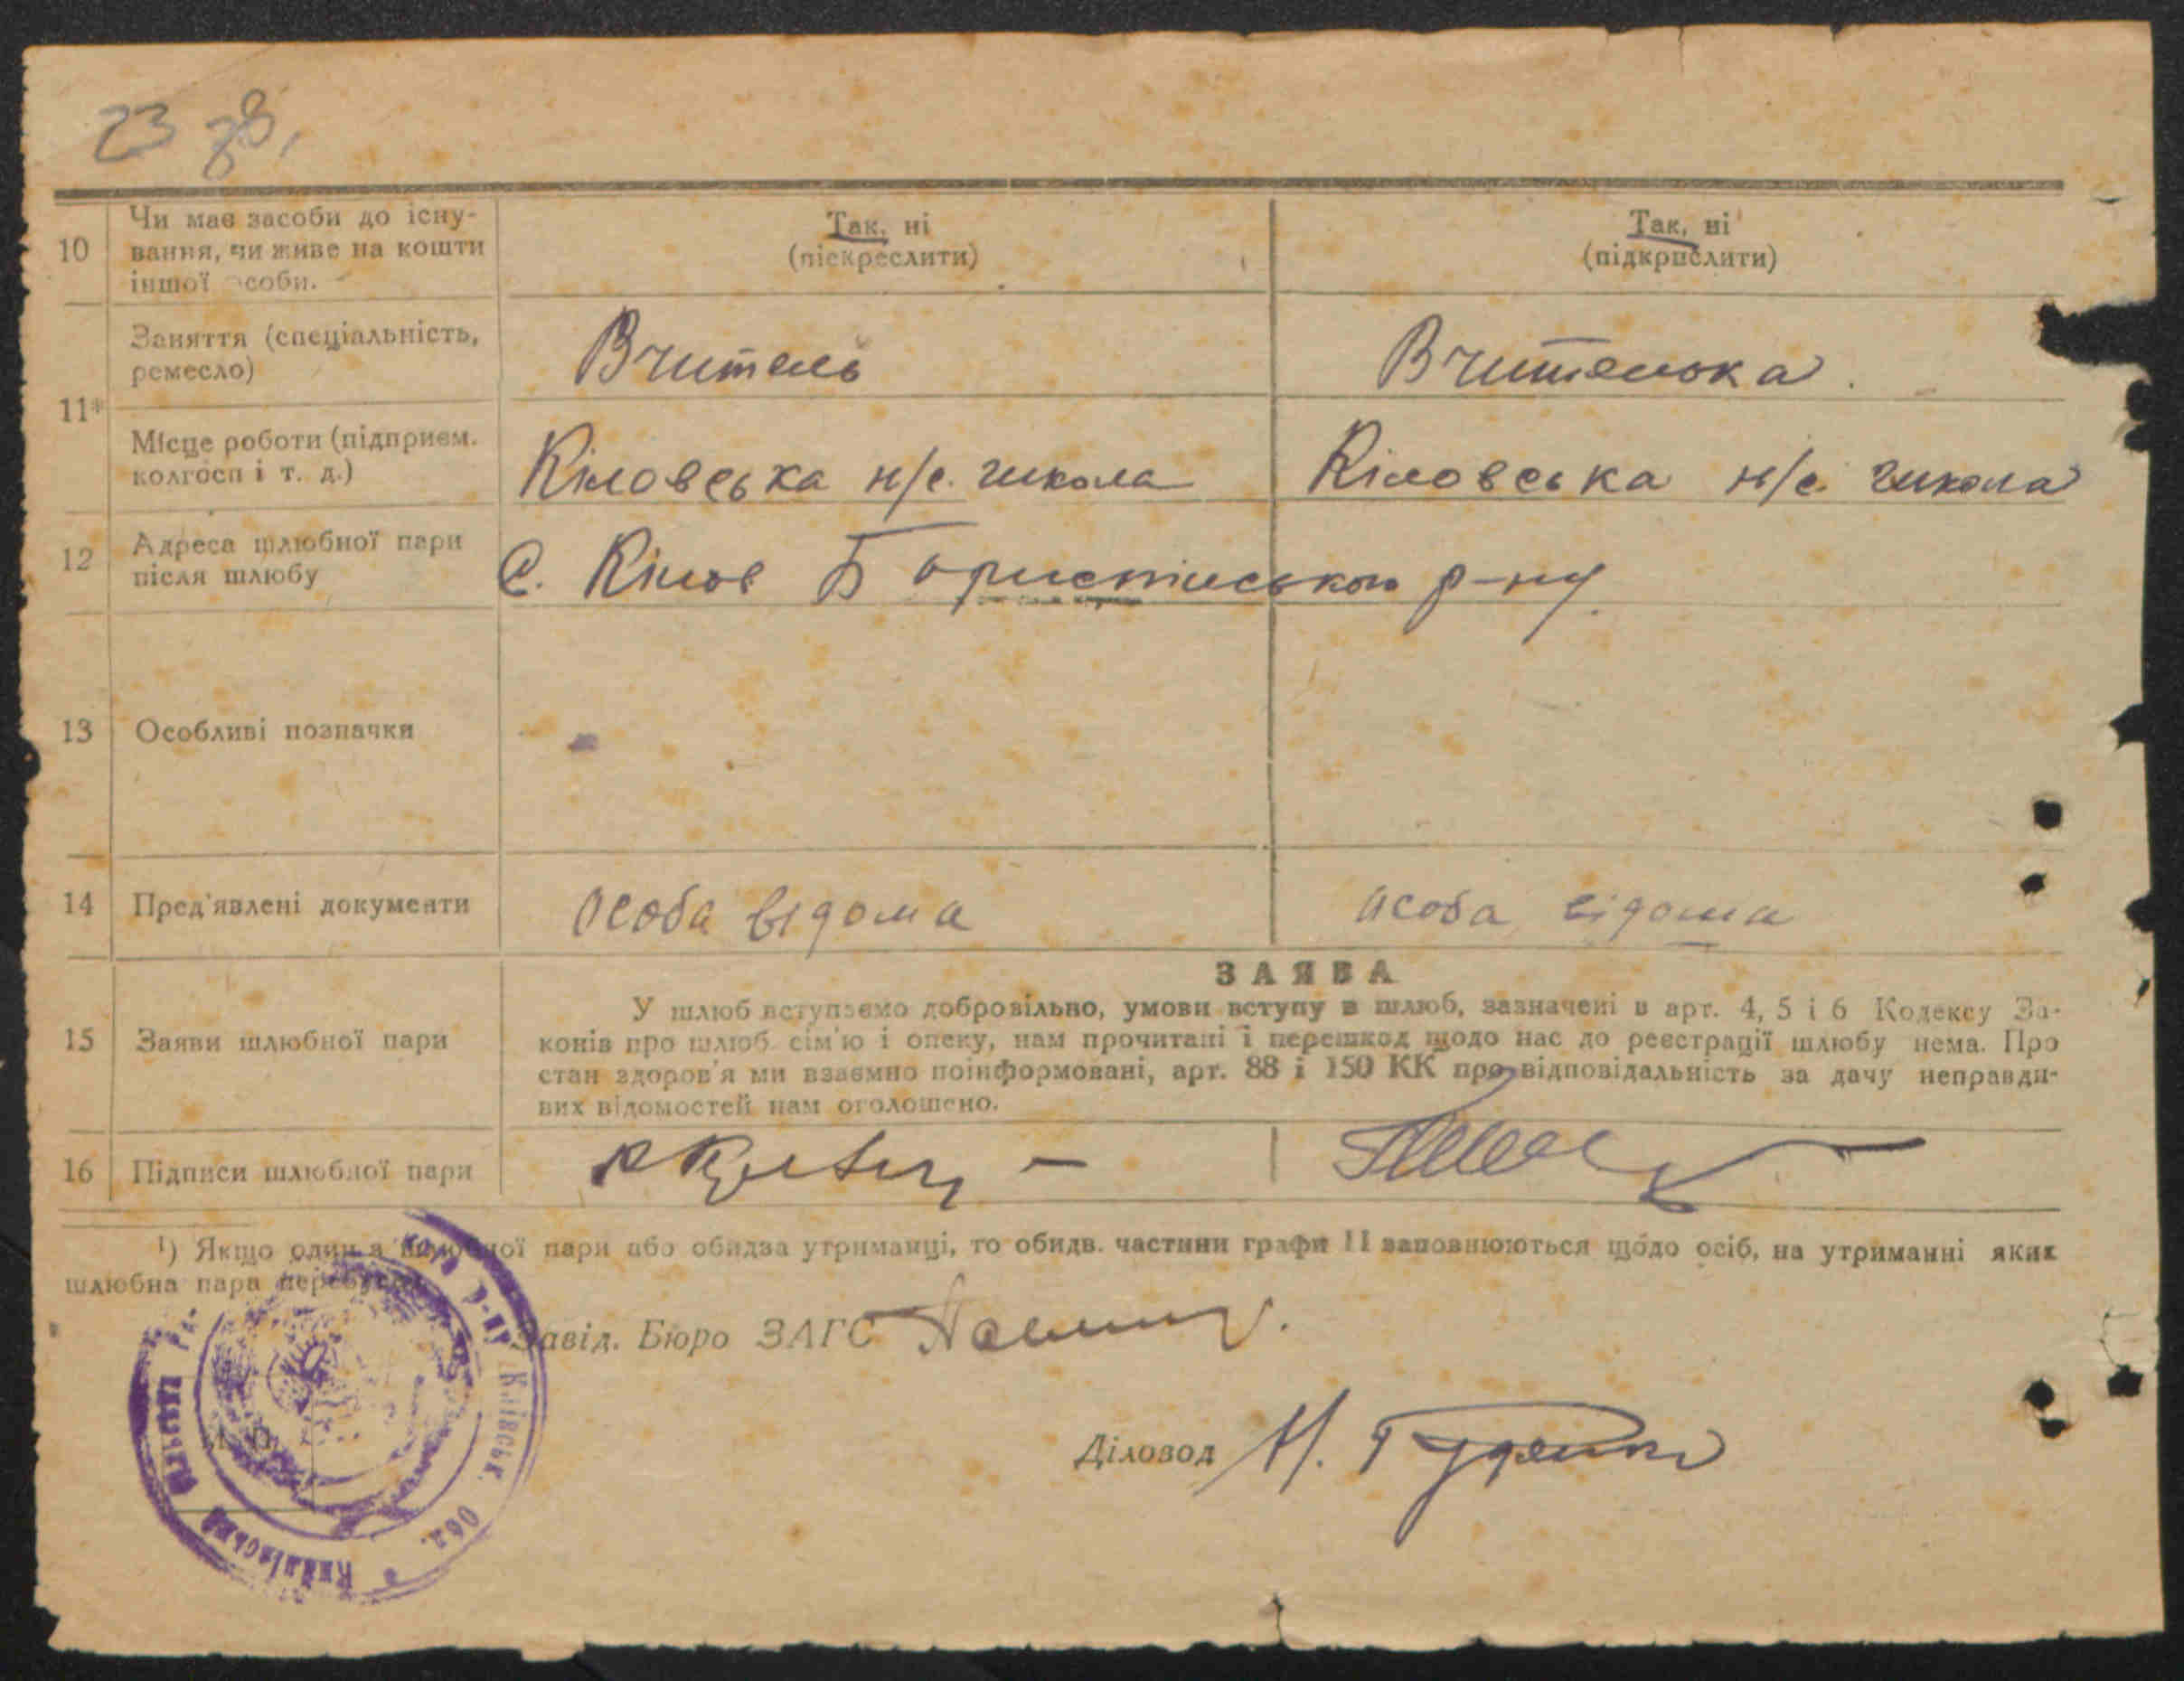 23 зв,
10
Чи має засоби до існу-
вання, чи живе на кошти
іншої особи.
Так, ні
(піскреслити)
Так, ні
(підкрислити)
11*
Заняття (спеціальність,
ремесло)
Вчитель
Вчителька.
Місце роботи (підприєм.
колгосп і т. д.)
Кіловська н/с. школа
Кіловська н/с. школа
12
Адреса шлюбної пари
після шлюбу
С. Кілов Бориспільського р-ну
13
Особливі позначки
14
Пред'явлені документи
Особа відома
особа відома
15
Заяви шлюбної пари
ЗАЯВА
У шлюб вступаємо добровільно, умови вступу в шлюб, зазначені в арт. 4, 5 і 6 Кодексу За-
конів про шлюб сім'ю і опеку, нам прочитані і перешкод щодо нас до реєстрації шлюбу нема. Про
стан здоров'я ми взаємно поінформовані, арт. 88 і 150 КК про відповідальність за дачу неправди-
вих відомостей нам оголошено.
16
Підписи шлюбної пари
¹) Якщо один з шлюбної пари або обидва утриманці, то обидв. частини графи 11 заповнюються щодо осіб, на утриманні яких
шлюбна пара перебуває
Завід. Бюро ЗАГС
Діловод
р-ну Київськ. Обл.
М. П.